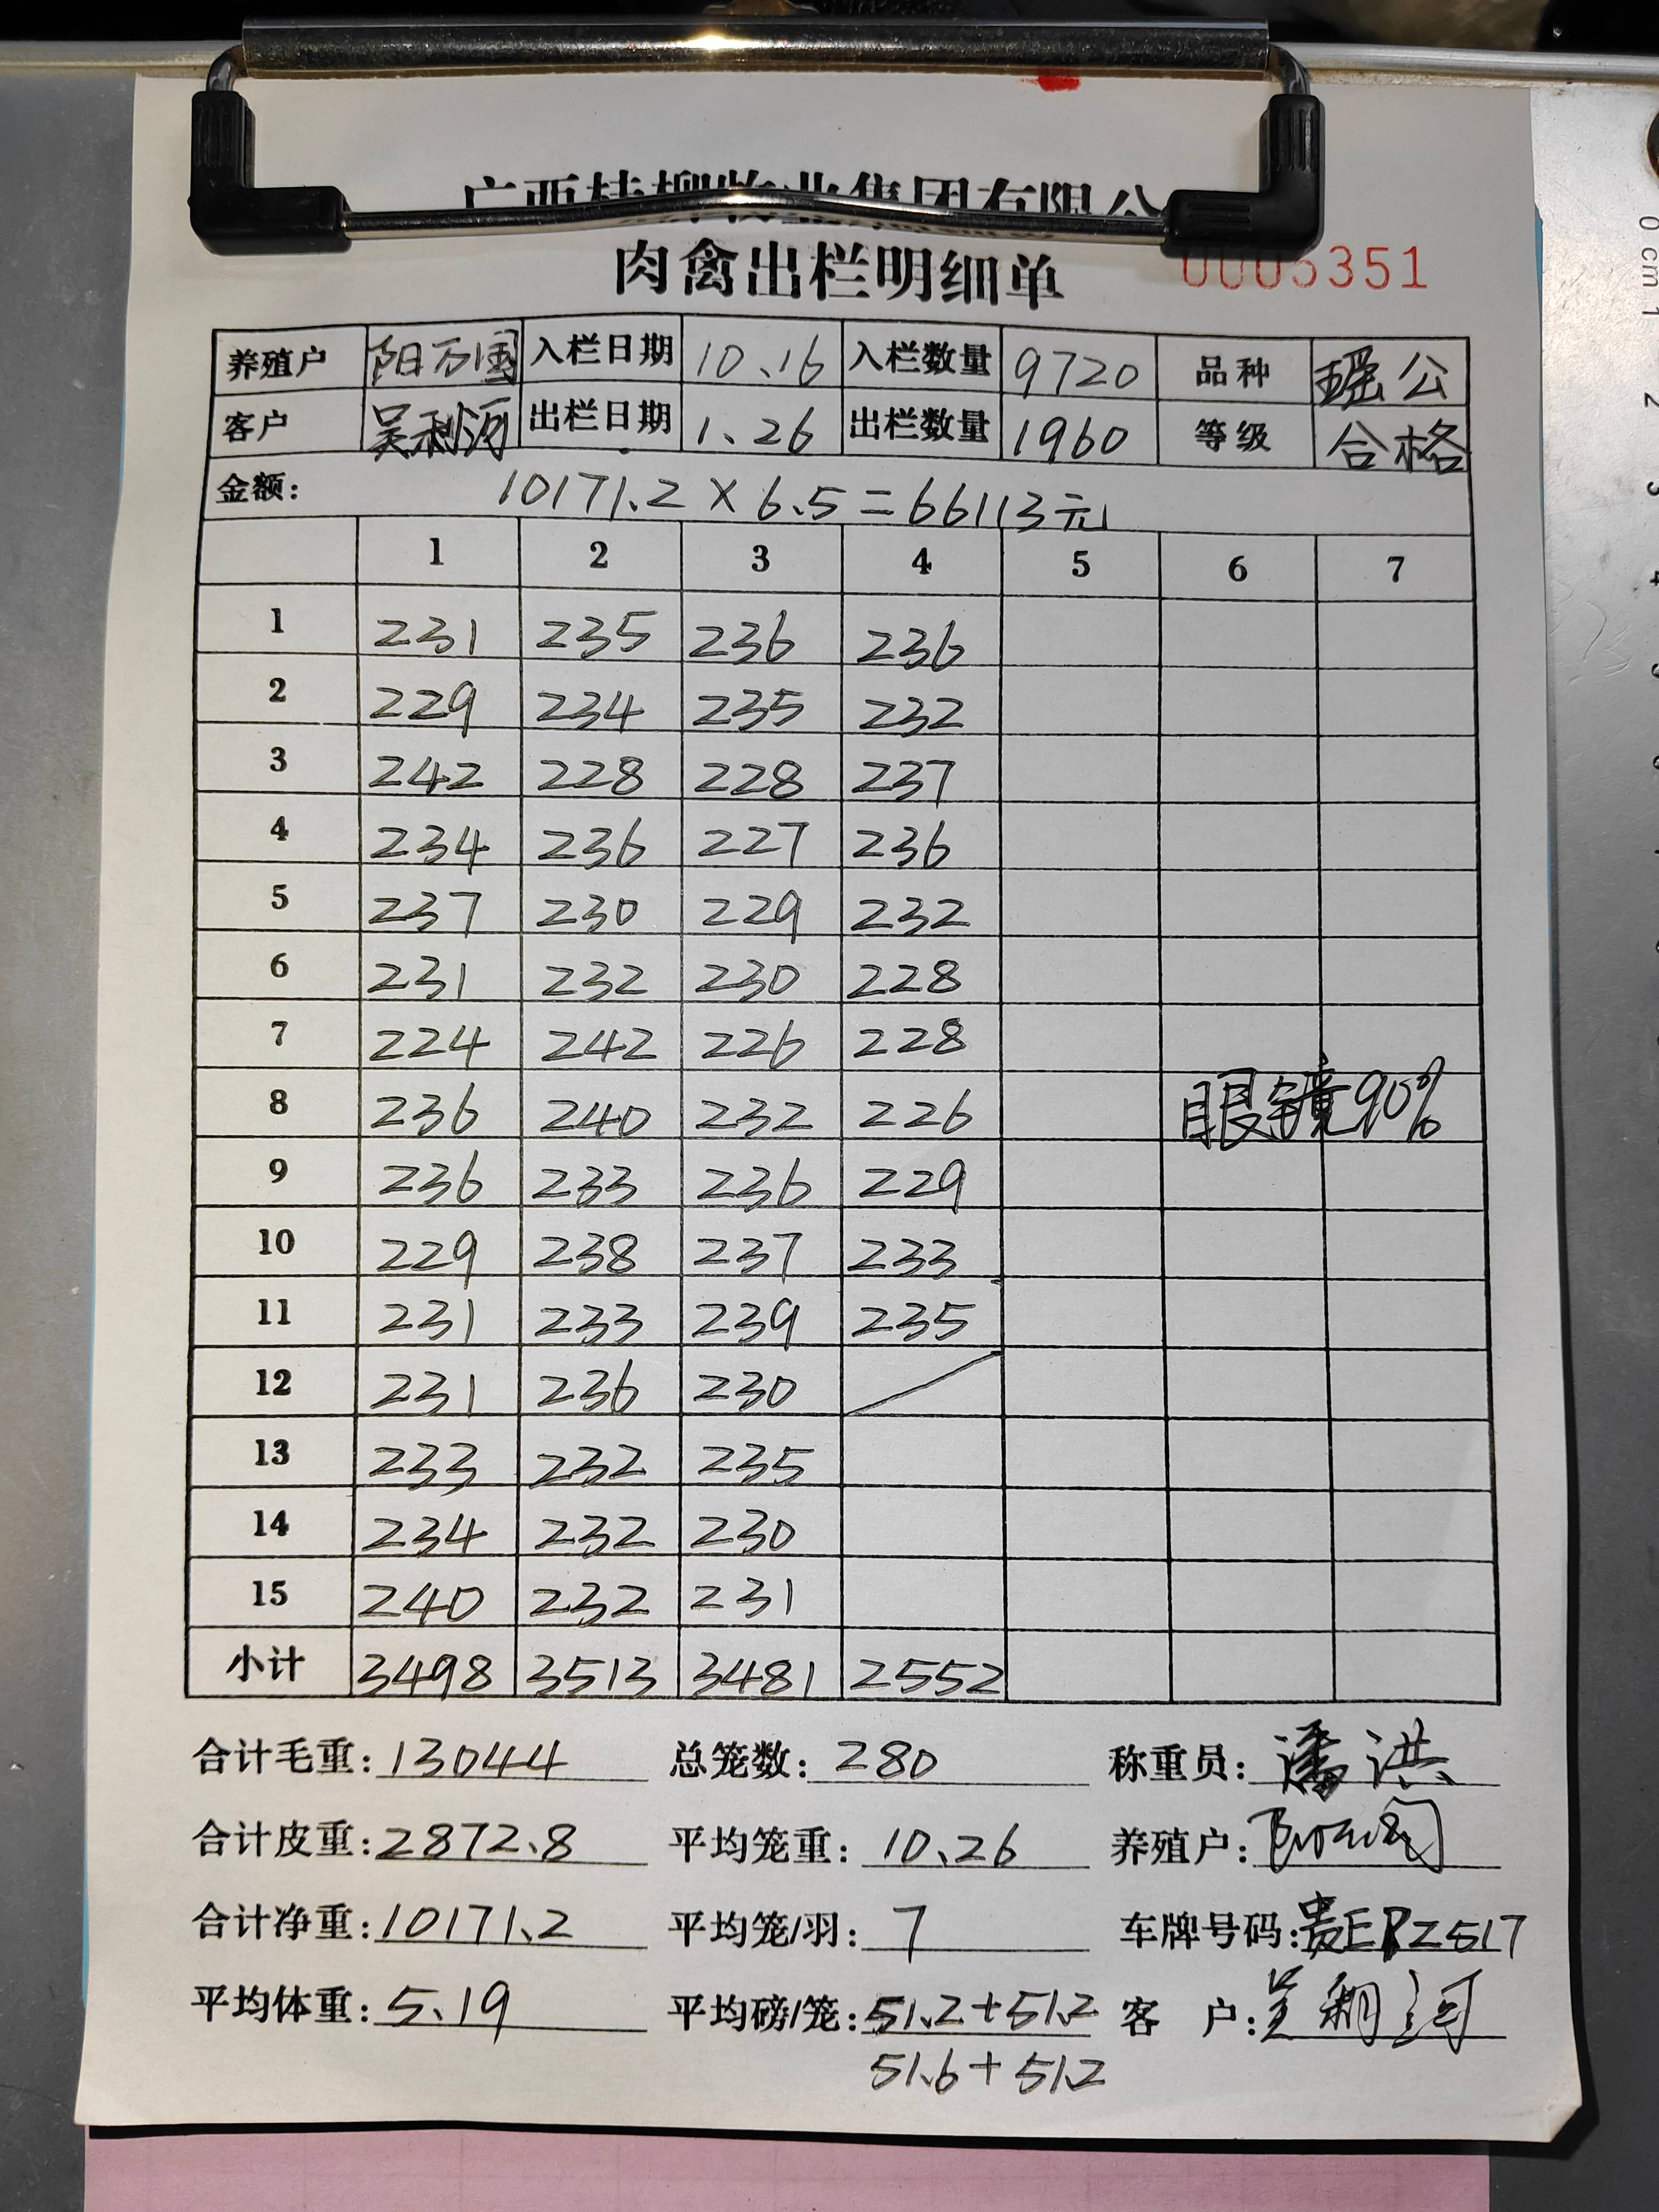 广西桂柳牧业集团有限公
肉禽出栏明细单 0005351
养殖户 阳万国 入栏日期 10.16 入栏数量 9720 品种 瑶公
客户 吴利河 出栏日期 1.26 出栏数量 1960 等级 合格
金额: 10171.2 × 6.5 = 66113元
1 2 3 4 5 6 7
1 231 235 236 236
2 229 234 235 232
3 242 228 228 237
4 234 236 227 236
5 237 230 229 232
6 231 232 230 228
7 224 242 226 228
8 236 240 232 226 眼镜90%
9 236 233 236 229
10 229 238 237 233
11 231 233 239 235
12 231 236 230
13 233 232 235
14 234 232 230
15 240 232 231
小计 3498 3513 3481 2552
合计毛重: 13044 总笼数: 280 称重员: 潘洪
合计皮重: 2872.8 平均笼重: 10.26 养殖户:
合计净重: 10171.2 平均笼/羽: 7 车牌号码: 贵ERZ517
平均体重: 5.19 平均磅/笼: 51.2+51.2 客户: 吴利河
51.6+51.2
0 cm 1 2 3 4 5